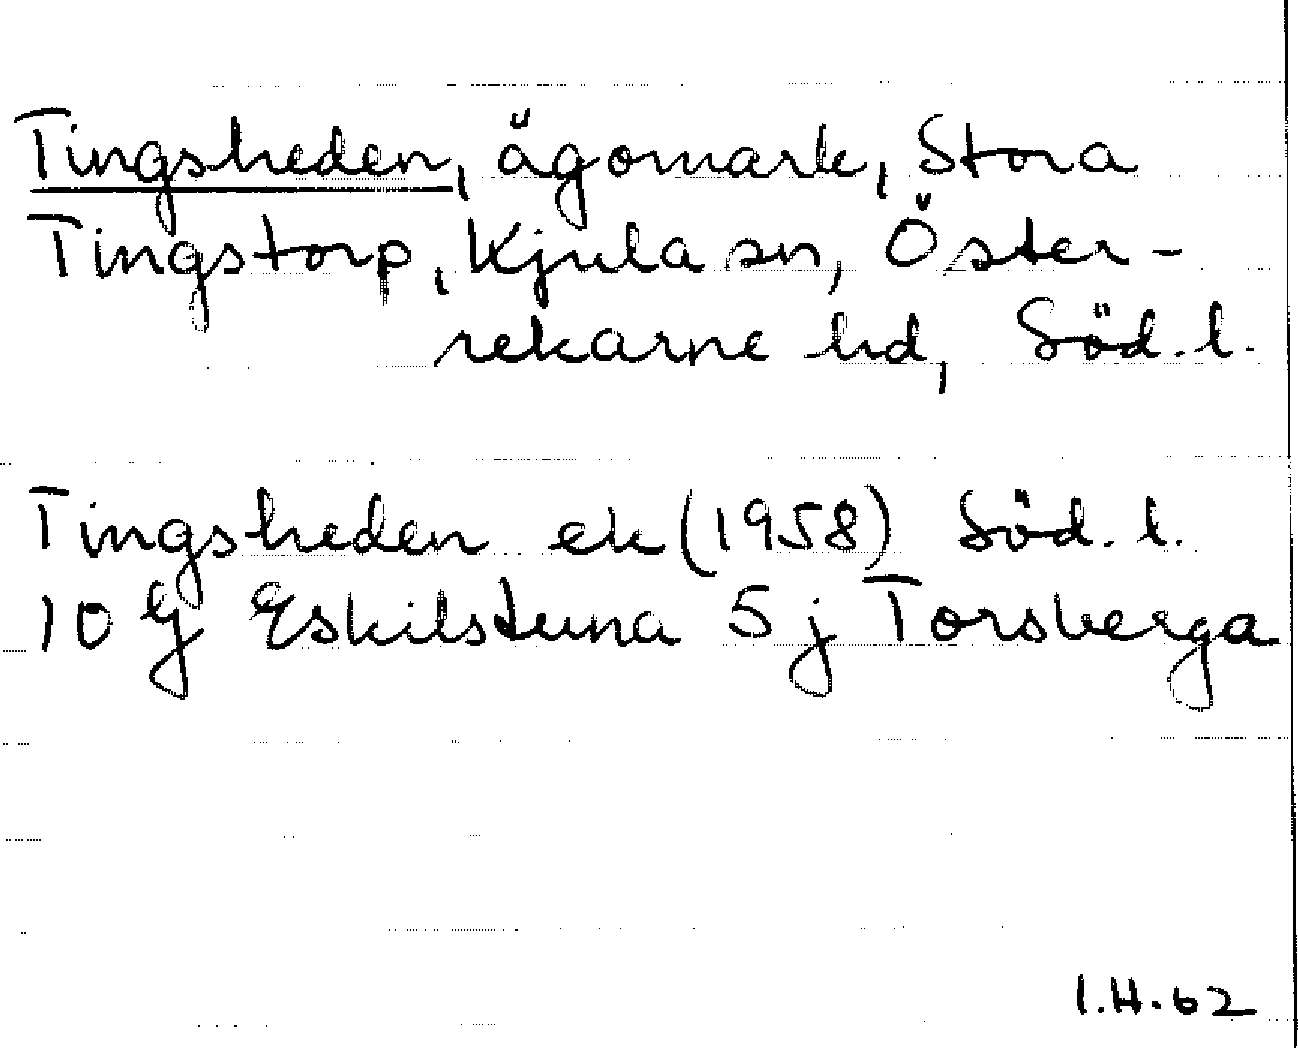 Tingsheden, ägomark, Stora
Tingstorp, Kjula sn, Öster-
rekarne hd, Söd. l.
Tingsheden ek (1958) Söd. l.
10 G Eskilstuna 5 j Torsberga
I.H.62